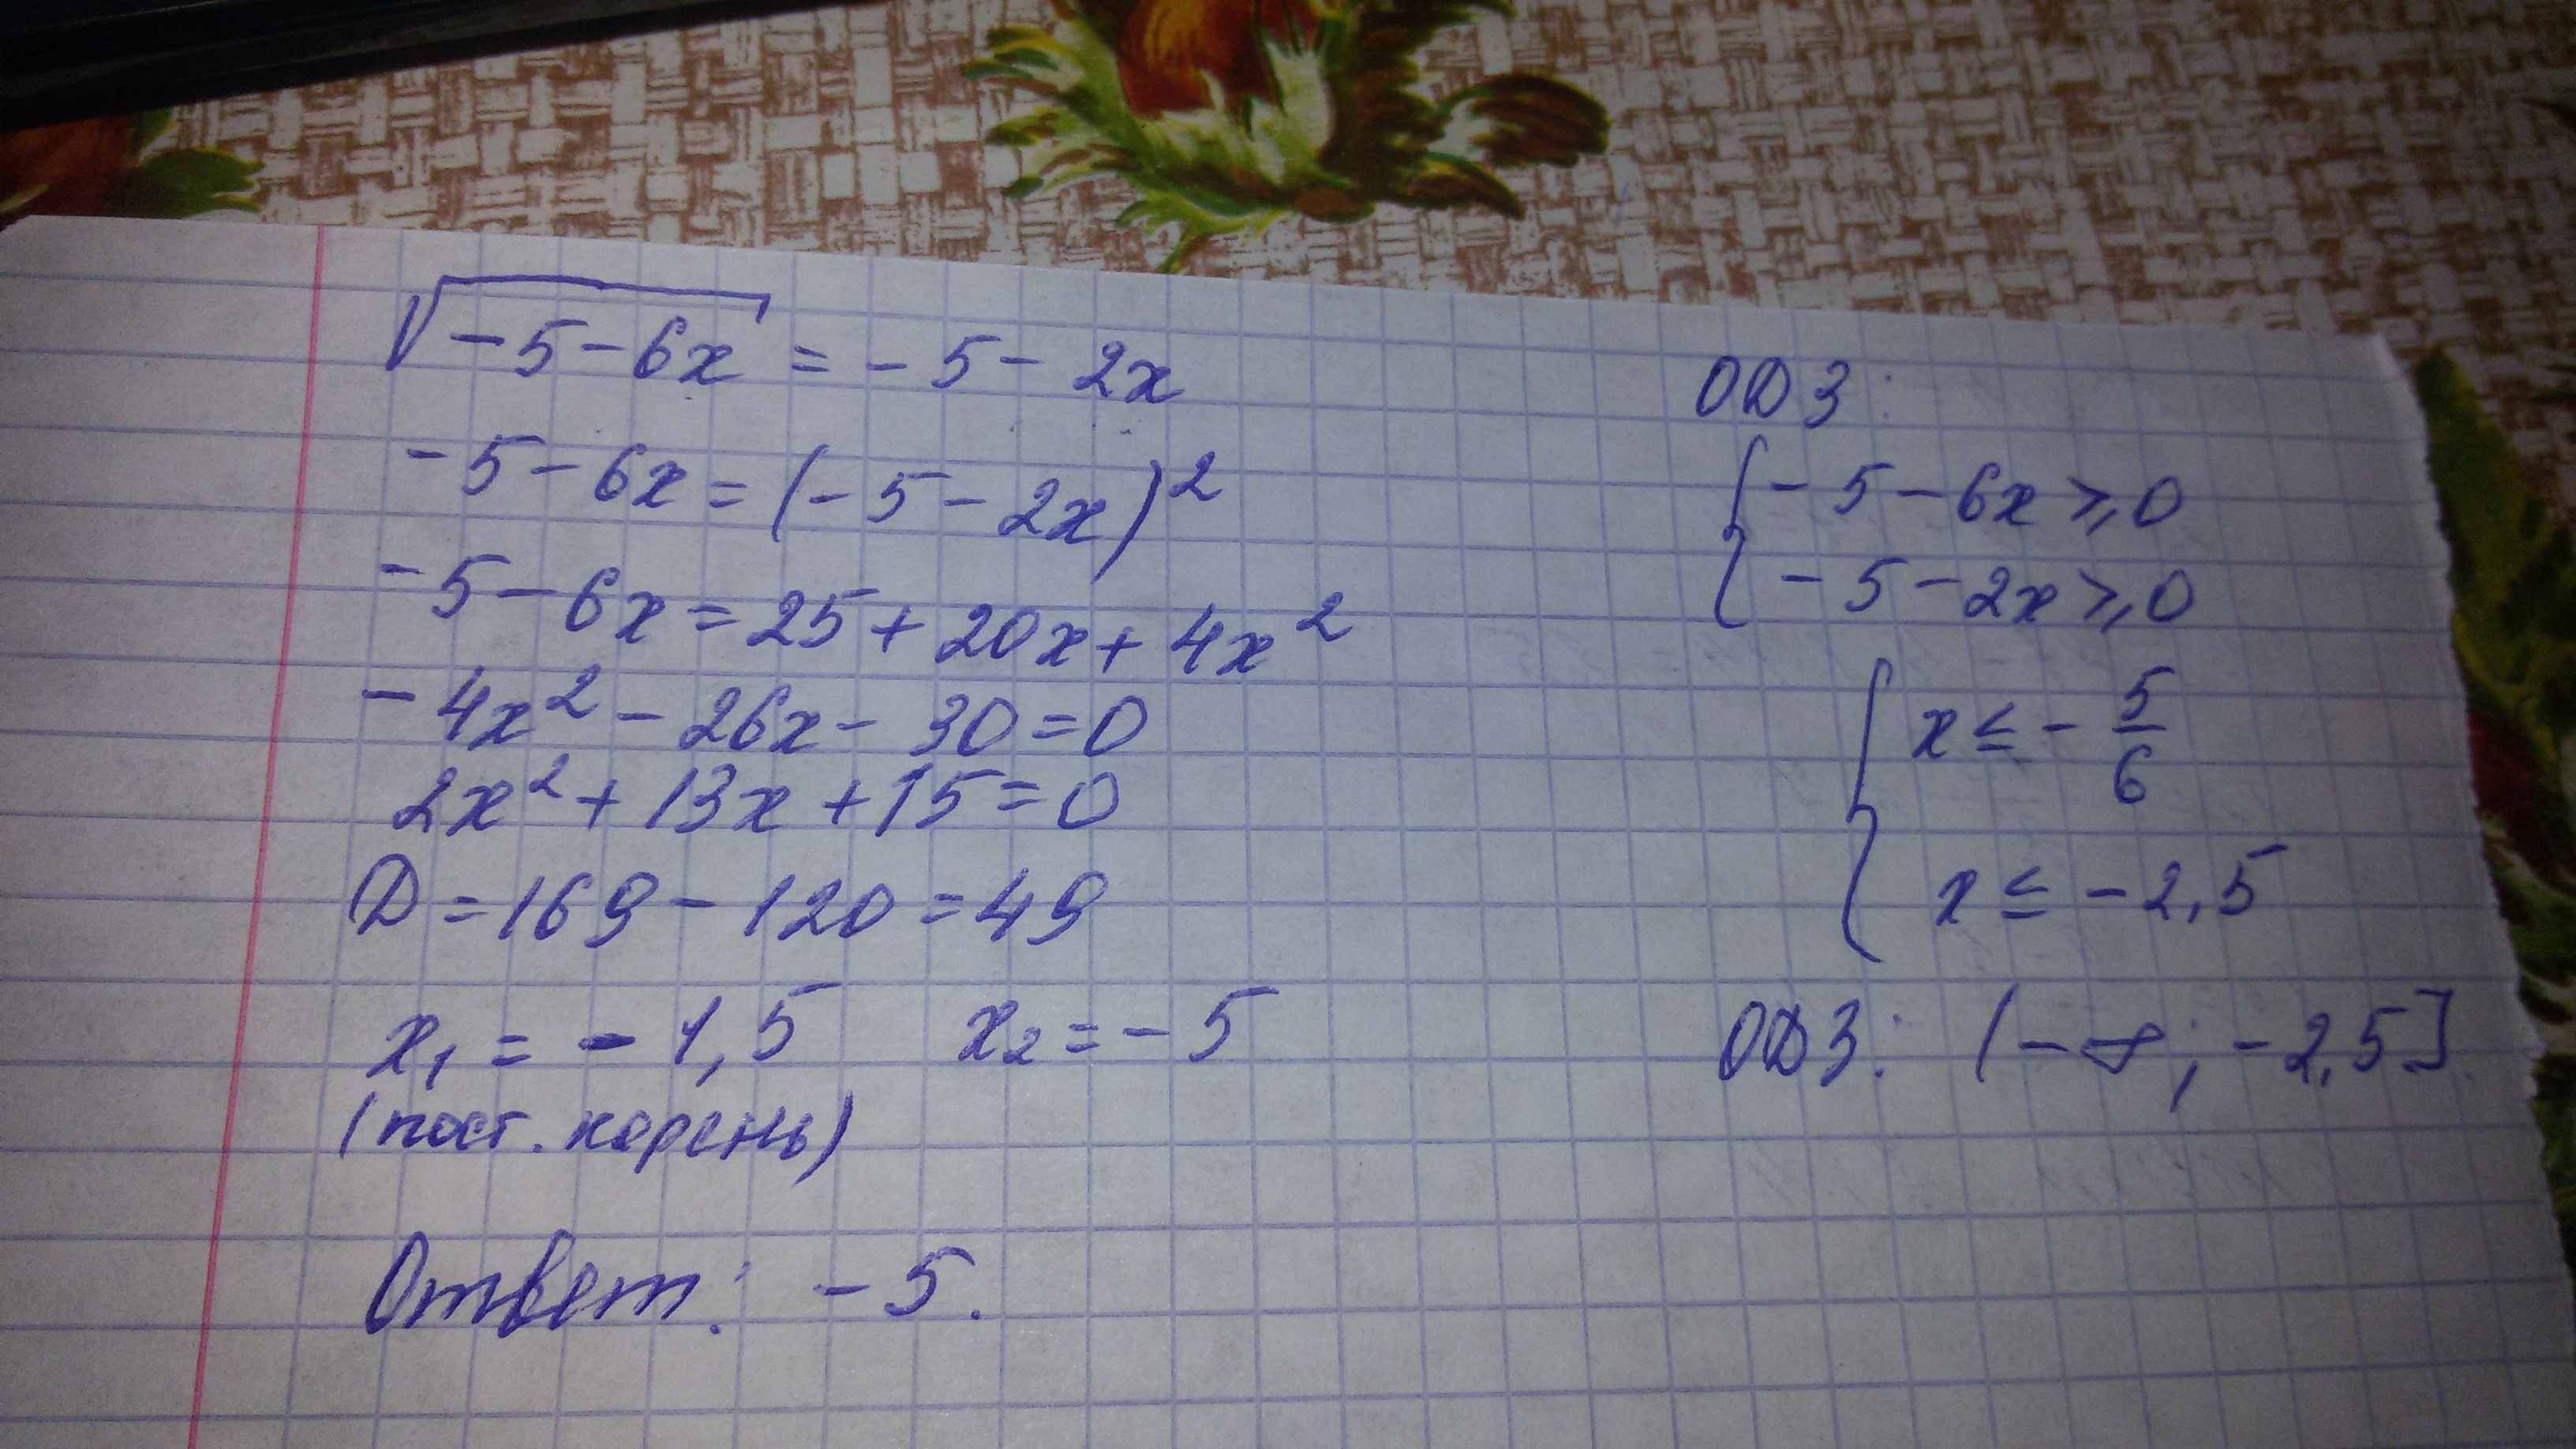 √(-5-6x) = -5-2x
-5-6x = (-5-2x)²
-5-6x = 25+20x+4x²
-4x²-26x-30=0
2x²+13x+15=0
D=169-120=49
x₁ = -1,5   x₂ = -5
(пост. корень)
Ответ: -5.
ОДЗ:
{ -5-6x ⩾ 0
-5-2x ⩾ 0
{ x ≤ - 5/6
x ≤ -2,5
ОДЗ: (-∞; -2,5]